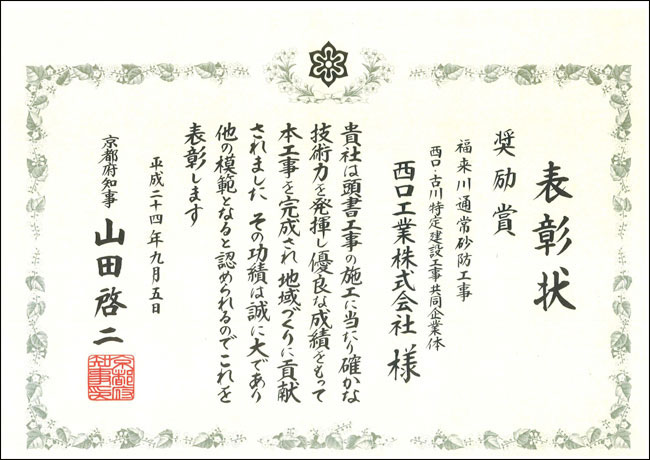 表彰状
奨励賞
福来川通常砂防工事
西口・古川特定建設工事共同企業体
西口工業株式会社 様
貴社は頭書工事の施工に当たり確かな
技術力を発揮し優良な成績をもって
本工事を完成され 地域づくりに貢献
されました その功績は誠に大であり
他の模範となると認められるのでこれを
表彰します
平成二十四年九月五日
京都府知事 山田啓二
京都府
知事印